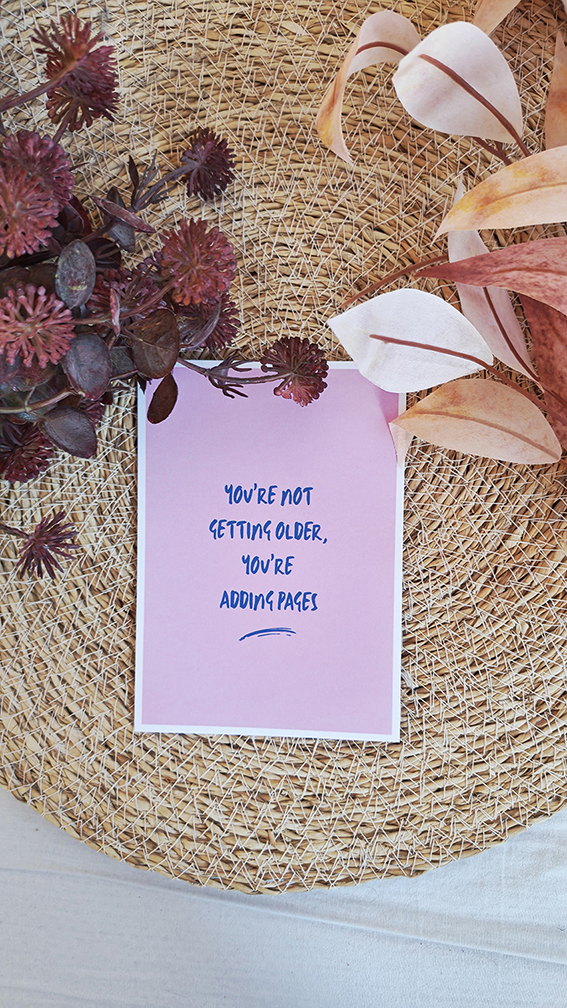 YOU'RE NOT
GETTING OLDER,
YOU'RE
ADDING PAGES